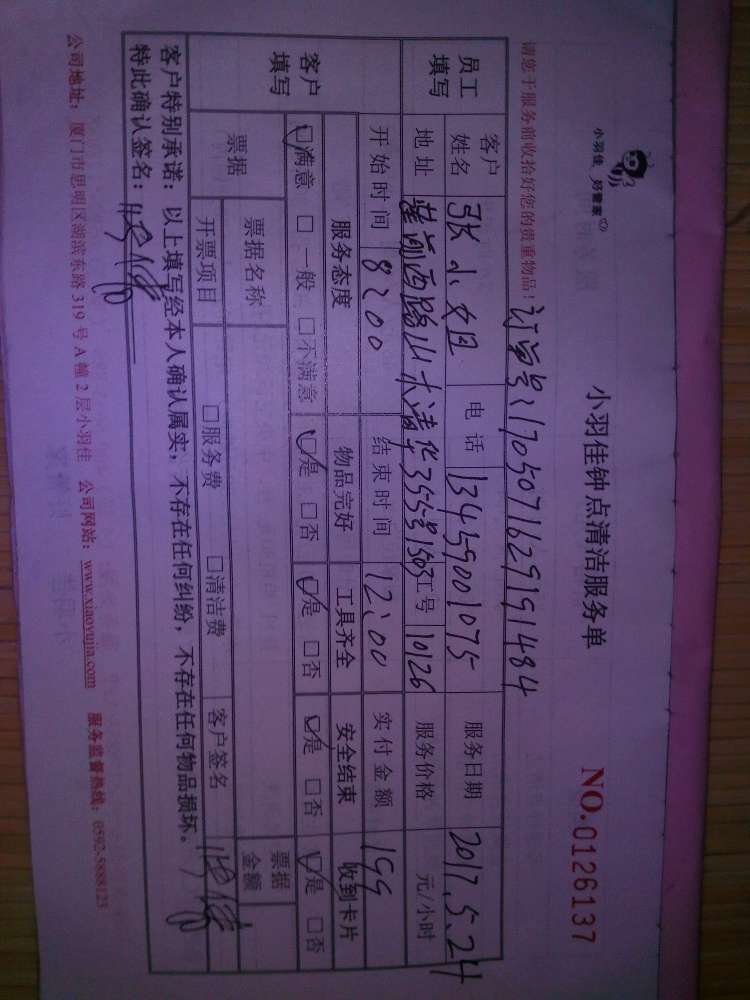 小羽佳 好管家
小羽佳钟点清洁服务单
NO.0126137
请您于服务前收拾好您的贵重物品!
订单号:1705071629191484
员工填写
客户姓名 张小姐 电话 13459001075 服务日期 2017.5.24
地址 莲前西路山水清华355号1503 工号 10126 服务价格 元/小时
开始时间 8:00 结束时间 12:00 实付金额 199
客户填写
服务态度 物品完好 工具齐全 安全结束 收到卡片
☑满意 □一般 □不满意 ☑是 □否 ☑是 □否 ☑是 □否 ☑是 □否
票据 票据名称 票据金额
开票项目 □服务费 □清洁费 客户签名
客户特别承诺:以上填写经本人确认属实;不存在任何纠纷,不存在任何物品损坏。
特此确认签名:
公司地址:厦门市思明区湖滨东路319号A幢2层小羽佳 公司网站:www.xiaoyujia.com 服务监督热线:0592-5888123